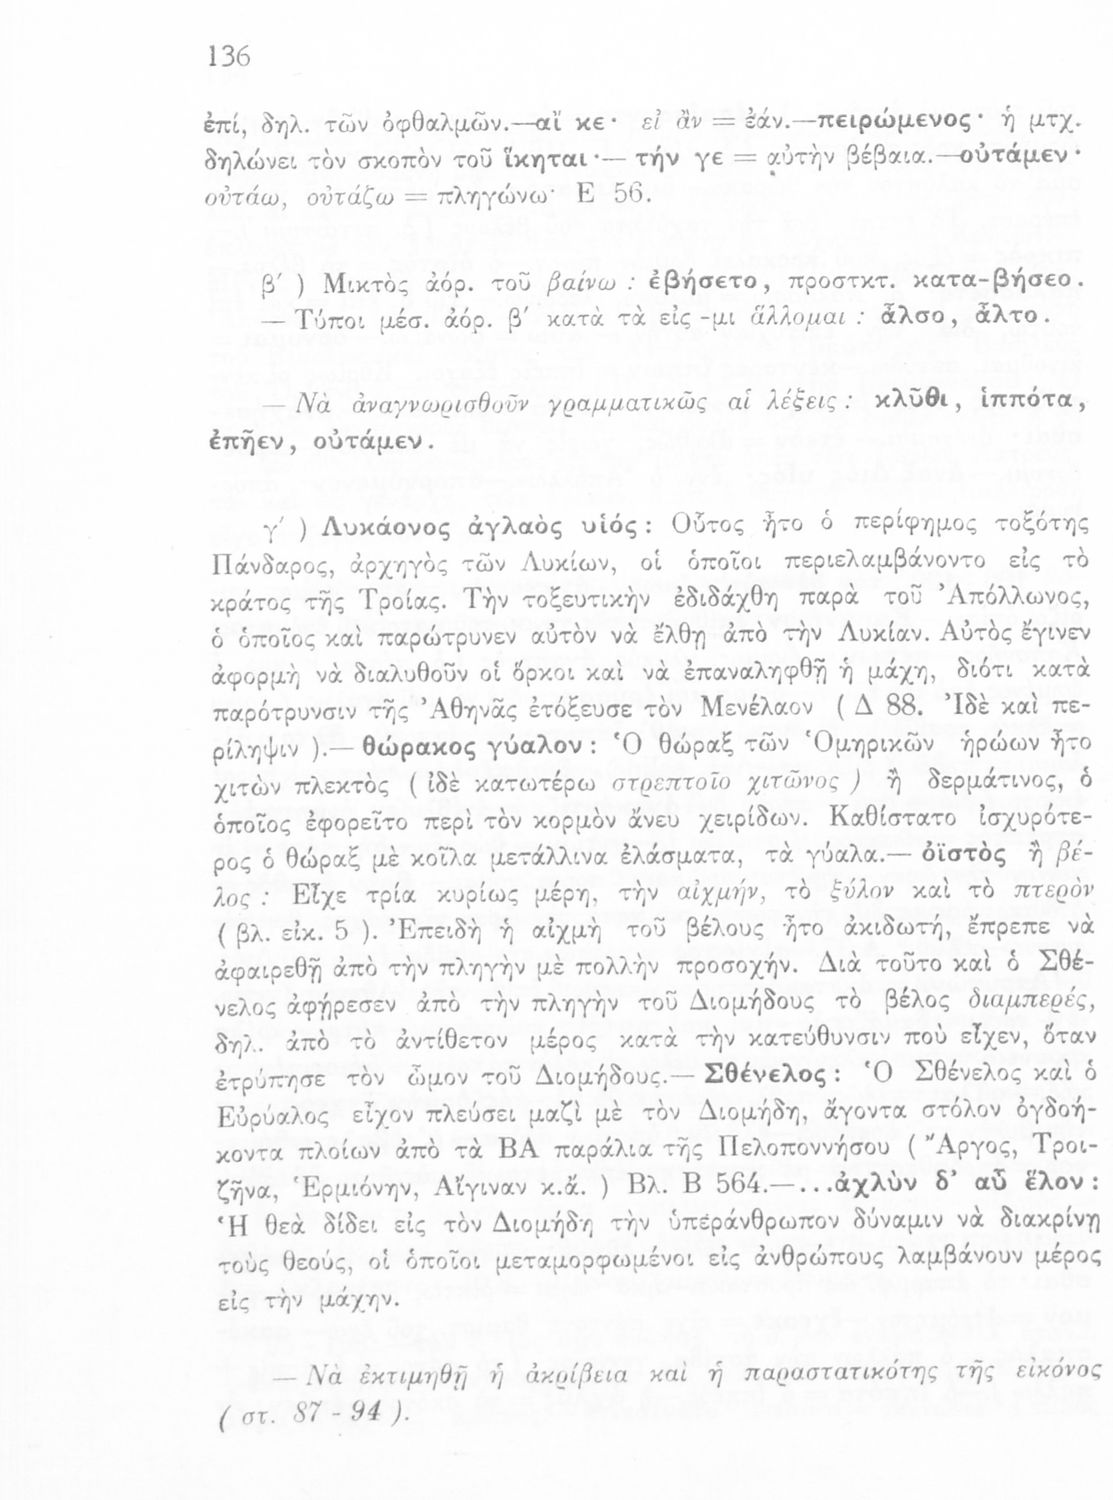 136
ἐπί, δηλ. τῶν ὀφθαλμῶν.—αἴ κε· εἰ ἂν = ἐάν.—πειρώμενος· ἡ μτχ.
δηλώνει τὸν σκοπὸν τοῦ ἵκηται·— τήν γε = αὐτὴν βέβαια.—οὐτάμεν·
οὐτάω, οὐτάζω = πληγώνω· Ε 56.
β΄ ) Μικτὸς ἀόρ. τοῦ βαίνω : ἐβήσετο, προστκτ. κατα-βήσεο.
— Τύποι μέσ. ἀόρ. β΄ κατὰ τὰ εἰς -μι ἅλλομαι : ἆλσο, ἆλτο.
— Νὰ ἀναγνωρισθοῦν γραμματικῶς αἱ λέξεις : κλῦθι, ἱππότα,
ἐπῆεν, οὐτάμεν.
γ΄ ) Λυκάονος ἀγλαὸς υἱός : Οὗτος ἦτο ὁ περίφημος τοξότης
Πάνδαρος, ἀρχηγὸς τῶν Λυκίων, οἱ ὁποῖοι περιελαμβάνοντο εἰς τὸ
κράτος τῆς Τροίας. Τὴν τοξευτικὴν ἐδιδάχθη παρὰ τοῦ Ἀπόλλωνος,
ὁ ὁποῖος καὶ παρώτρυνεν αὐτὸν νὰ ἔλθῃ ἀπὸ τὴν Λυκίαν. Αὐτὸς ἔγινεν
ἀφορμὴ νὰ διαλυθοῦν οἱ ὅρκοι καὶ νὰ ἐπαναληφθῇ ἡ μάχη, διότι κατὰ
παρότρυνσιν τῆς Ἀθηνᾶς ἐτόξευσε τὸν Μενέλαον ( Δ 88. Ἰδὲ καὶ πε-
ρίληψιν ).— θώρακος γύαλον : Ὁ θώραξ τῶν Ὁμηρικῶν ἡρώων ἦτο
χιτὼν πλεκτὸς ( ἰδὲ κατωτέρω στρεπτοῖο χιτῶνος ) ἢ δερμάτινος, ὁ
ὁποῖος ἐφορεῖτο περὶ τὸν κορμὸν ἄνευ χειρίδων. Καθίστατο ἰσχυρότε-
ρος ὁ θώραξ μὲ κοῖλα μετάλλινα ἐλάσματα, τὰ γύαλα.— ὀϊστὸς ἢ βέ-
λος : Εἶχε τρία κυρίως μέρη, τὴν αἰχμήν, τὸ ξύλον καὶ τὸ πτερὸν
( βλ. εἰκ. 5 ). Ἐπειδὴ ἡ αἰχμὴ τοῦ βέλους ἦτο ἀκιδωτή, ἔπρεπε νὰ
ἀφαιρεθῇ ἀπὸ τὴν πληγὴν μὲ πολλὴν προσοχήν. Διὰ τοῦτο καὶ ὁ Σθέ-
νελος ἀφῄρεσεν ἀπὸ τὴν πληγὴν τοῦ Διομήδους τὸ βέλος διαμπερές,
δηλ. ἀπὸ τὸ ἀντίθετον μέρος κατὰ τὴν κατεύθυνσιν ποὺ εἶχεν, ὅταν
ἐτρύπησε τὸν ὦμον τοῦ Διομήδους.— Σθένελος : Ὁ Σθένελος καὶ ὁ
Εὐρύαλος εἶχον πλεύσει μαζὶ μὲ τὸν Διομήδη, ἄγοντα στόλον ὀγδοή-
κοντα πλοίων ἀπὸ τὰ ΒΑ παράλια τῆς Πελοποννήσου ( Ἄργος, Τροι-
ζῆνα, Ἑρμιόνην, Αἴγιναν κ.ἄ. ) Βλ. Β 564.—...ἀχλὺν δ’ αὖ ἕλον :
Ἡ θεὰ δίδει εἰς τὸν Διομήδη τὴν ὑπεράνθρωπον δύναμιν νὰ διακρίνῃ
τοὺς θεούς, οἱ ὁποῖοι μεταμορφωμένοι εἰς ἀνθρώπους λαμβάνουν μέρος
εἰς τὴν μάχην.
— Νὰ ἐκτιμηθῇ ἡ ἀκρίβεια καὶ ἡ παραστατικότης τῆς εἰκόνος
( στ. 87 - 94 ).